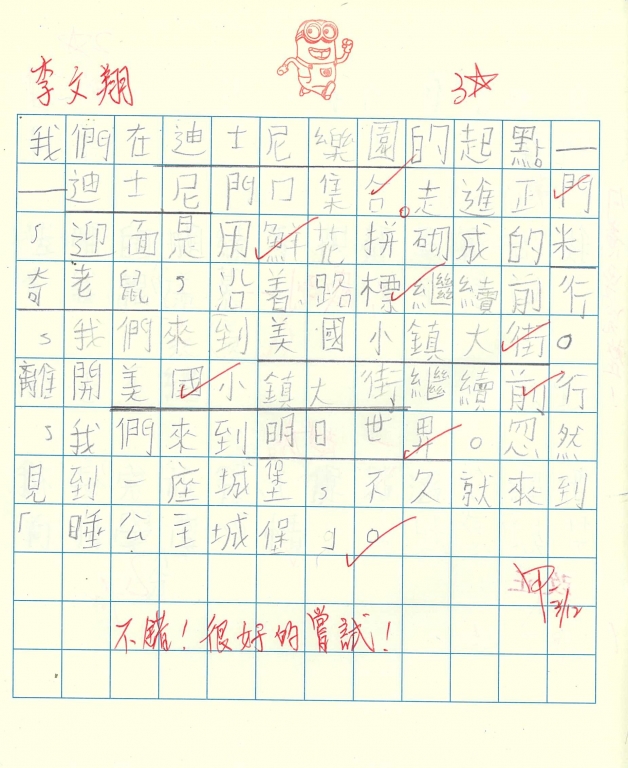 李文翔
3☆
我們在迪士尼樂園的起點—
—迪士尼門口集合。走進正門
，迎面是用鮮花拼砌成的米
奇老鼠，沿着路標繼續前行
，我們來到美國小鎮大街。
離開美國小鎮大街，繼續前行
，我們來到明日世界。忽然
見到一座城堡，不久就來到
「睡公主城堡」。
甲-
不錯！很好的嘗試！